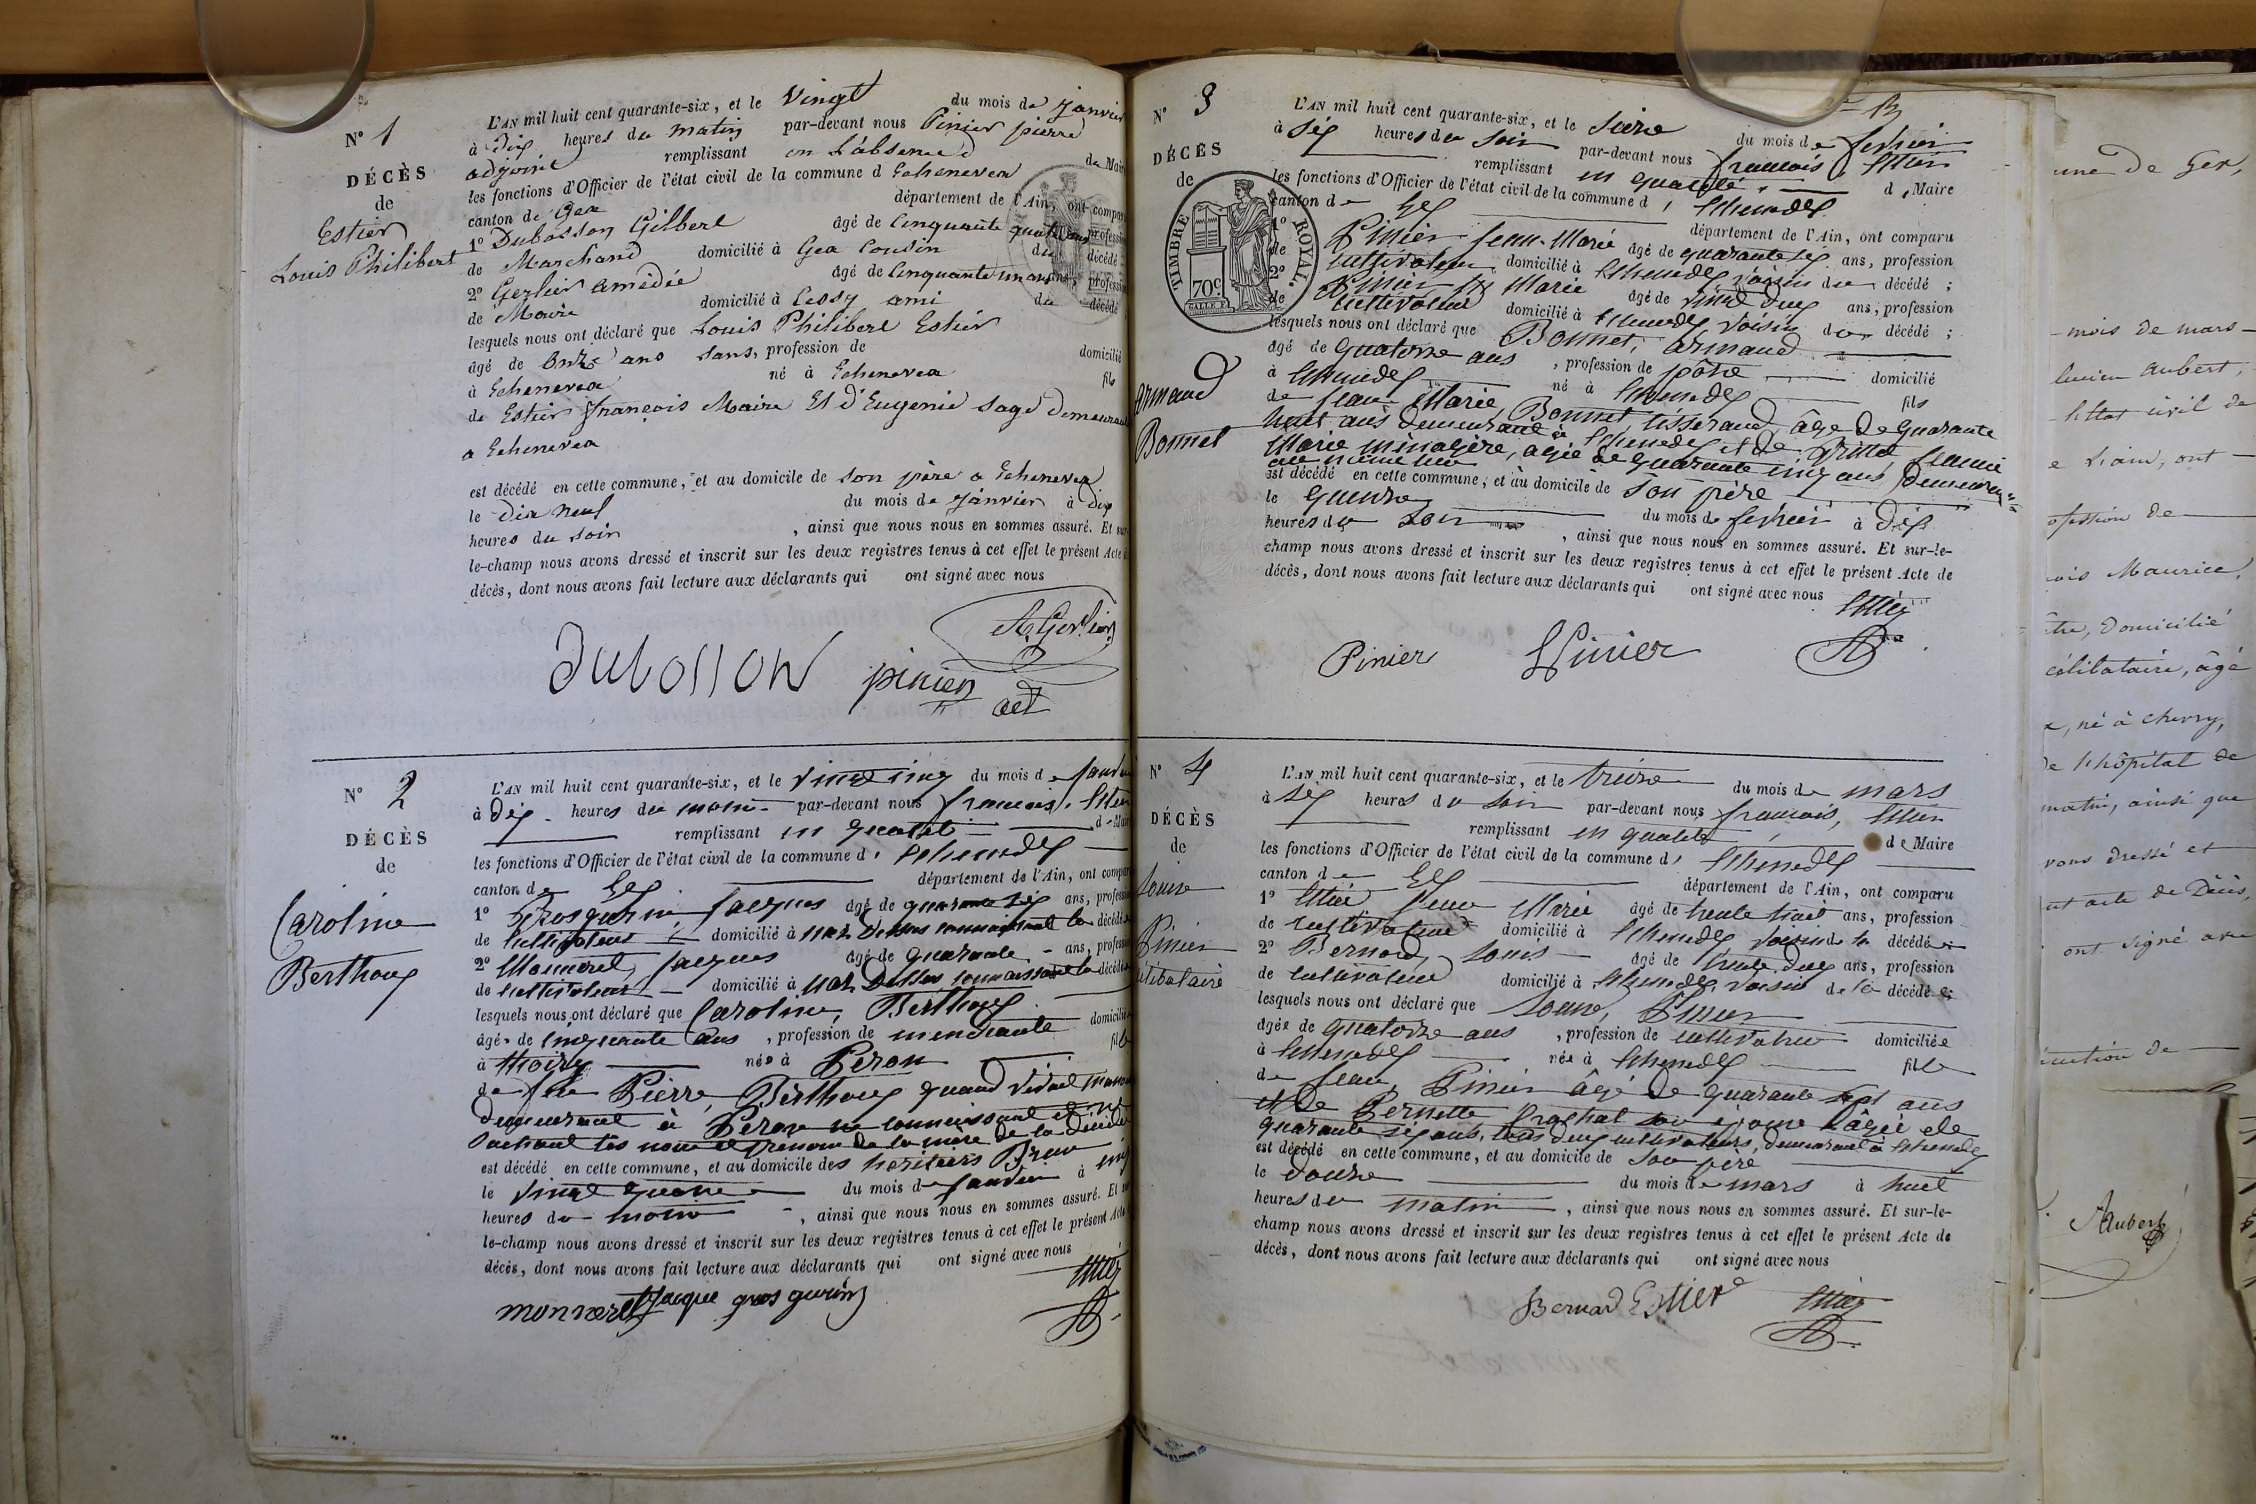 N° 1
DÉCÈS
de
Estier
Louis Philibert
L'AN mil huit cent quarante-six, et le Vingt du mois de Janvier
à Dix heures du matin par-devant nous Pinier pierre
adjoint remplissant en L'absence d de Mair
les fonctions d'Officier de l'état civil de la commune d Echenevex
canton de Gex département de l'Ain, ont compar
1° Dubosson Gilbert âgé de Cinquante quatre ans, professi
de Marchand domicilié à Gex Cousin du décédé
2° Gerlier amédée âgé de Cinquante un ans, professi
de Maire domicilié à Cessy ami du décédé
lesquels nous ont déclaré que Louis Philibert Estier
âgé de Onze ans sans, profession de domicilié
à Echenevex né à Echenevex fils
de Estier françois Maire Et d'Eugenie Sage demeurant
a Echenevex
est décédé en cette commune, et au domicile de son père a Echenevex
le dix neuf du mois de Janvier à dix
heures du soir , ainsi que nous nous en sommes assuré. Et sur-
le-champ nous avons dressé et inscrit sur les deux registres tenus à cet effet le présent Acte d
décès, dont nous avons fait lecture aux déclarants qui ont signé avec nous
A Gerlier
Dubosson pinier
adt
N° 2
DÉCÈS
de
Caroline
Berthoux
L'AN mil huit cent quarante-six, et le vingt cinq du mois de Janvier
à dix heures du matin par-devant nous françois, Estier
remplissant en qualité de Mair
les fonctions d'Officier de l'état civil de la commune d' Echenevex
canton de Gex département de l'Ain, ont compar
1° Grosgurin Jacques âgé de quarante six ans, professi
de cultivateur domicilié à Naz Dessus connaissant la décédée
2° Monneret, Jacques âgé de quarante ans, professi
de cultivateur domicilié à Naz Dessus, connaissant la décédée
lesquels nous ont déclaré que Caroline, Berthoux
âgée de cinquante ans , profession de mendiante domiciliée
à Thoiry née à Peron fille
de feu Pierre, Berthoux quand vivait
demeurant à Peron ne connaissant et ne
sachant les nom et prénom de la mère de la décédée
est décédé en cette commune, et au domicile des heritiers
le vingt quatre du mois de Janvier à cinq
heures du matin , ainsi que nous nous en sommes assuré. Et sur-
le-champ nous avons dressé et inscrit sur les deux registres tenus à cet effet le présent Acte
décès, dont nous avons fait lecture aux déclarants qui ont signé avec nous
Estier
monneret Jacque gros gurin
N° 3
DÉCÈS
de
TIMBRE ROYAL
70c
Armand
Bonnet
L'AN mil huit cent quarante-six, et le seize du mois de février
à six heures du soir par-devant nous françois, Estier
remplissant en qualité de Maire
les fonctions d'Officier de l'état civil de la commune d' Echenevex
canton de Gex département de l'Ain, ont comparu
1° Pinier Jean-Marie âgé de quarante six ans, profession
de cultivateur domicilié à Echenevex, voisin du décédé ;
2° Pinier Marie âgé de vingt deux ans, profession
de cultivateur domicilié à Echenevex, voisin du décédé ;
lesquels nous ont déclaré que Bonnet, armand
âgé de quatorze ans , profession de pâtre domicilié
à Echenevex né à Echenevex fils
de Jean Marie Bonnet, tisserand, âgé de quarante
huit ans demeurant à Echenevex et de Jeanne
Marie ménagère, agée de quarante cinq ans, demeurant
au même lieu
est décédé en cette commune, et au domicile de son père
le quinze du mois de février à dix
heures du soir , ainsi que nous nous en sommes assuré. Et sur-le-
champ nous avons dressé et inscrit sur les deux registres tenus à cet effet le présent Acte de
décès, dont nous avons fait lecture aux déclarants qui ont signé avec nous
Estier
Pinier Pinier
N° 4
DÉCÈS
de
Louise
Pinier
célibataire
L'AN mil huit cent quarante-six, et le treize du mois de mars
à six heures du soir par-devant nous françois, Estier
remplissant en qualité de Maire
les fonctions d'Officier de l'état civil de la commune d' Echenevex
canton de Gex département de l'Ain, ont comparu
1° Estier Jean Marie âgé de trente trois ans, profession
de cultivateur domicilié à Echenevex voisin de la décédée
2° Bernard, Louis âgé de trente deux ans, profession
de cultivateur domicilié à Echenevex, voisin de la décédée ;
lesquels nous ont déclaré que Louise, Pinier
âgée de quatorze ans , profession de cultivatrice domiciliée
à Echenevex née à Echenevex fille
de Jean, Pinier âgé de quarante sept ans
et de Pernette Prachat son épouse âgée de
quarante six ans, tous deux cultivateurs, demeurant à Echenevex
est décédé en cette commune, et au domicile de son père
le douze du mois de mars à huit
heures du matin , ainsi que nous nous en sommes assuré. Et sur-le-
champ nous avons dressé et inscrit sur les deux registres tenus à cet effet le présent Acte de
décès, dont nous avons fait lecture aux déclarants qui ont signé avec nous
Bernard Estier Estier
une de Gex,
mois de mars
lucien Aubert,
l'Etat civil de
ont
ofession de
ois Maurice,
domicilié
célibataire, âgé
né à Chevry,
de l'hôpital de
matin, ainsi que
vons dressé et
acte de Décès,
ont signé avec
Aubert